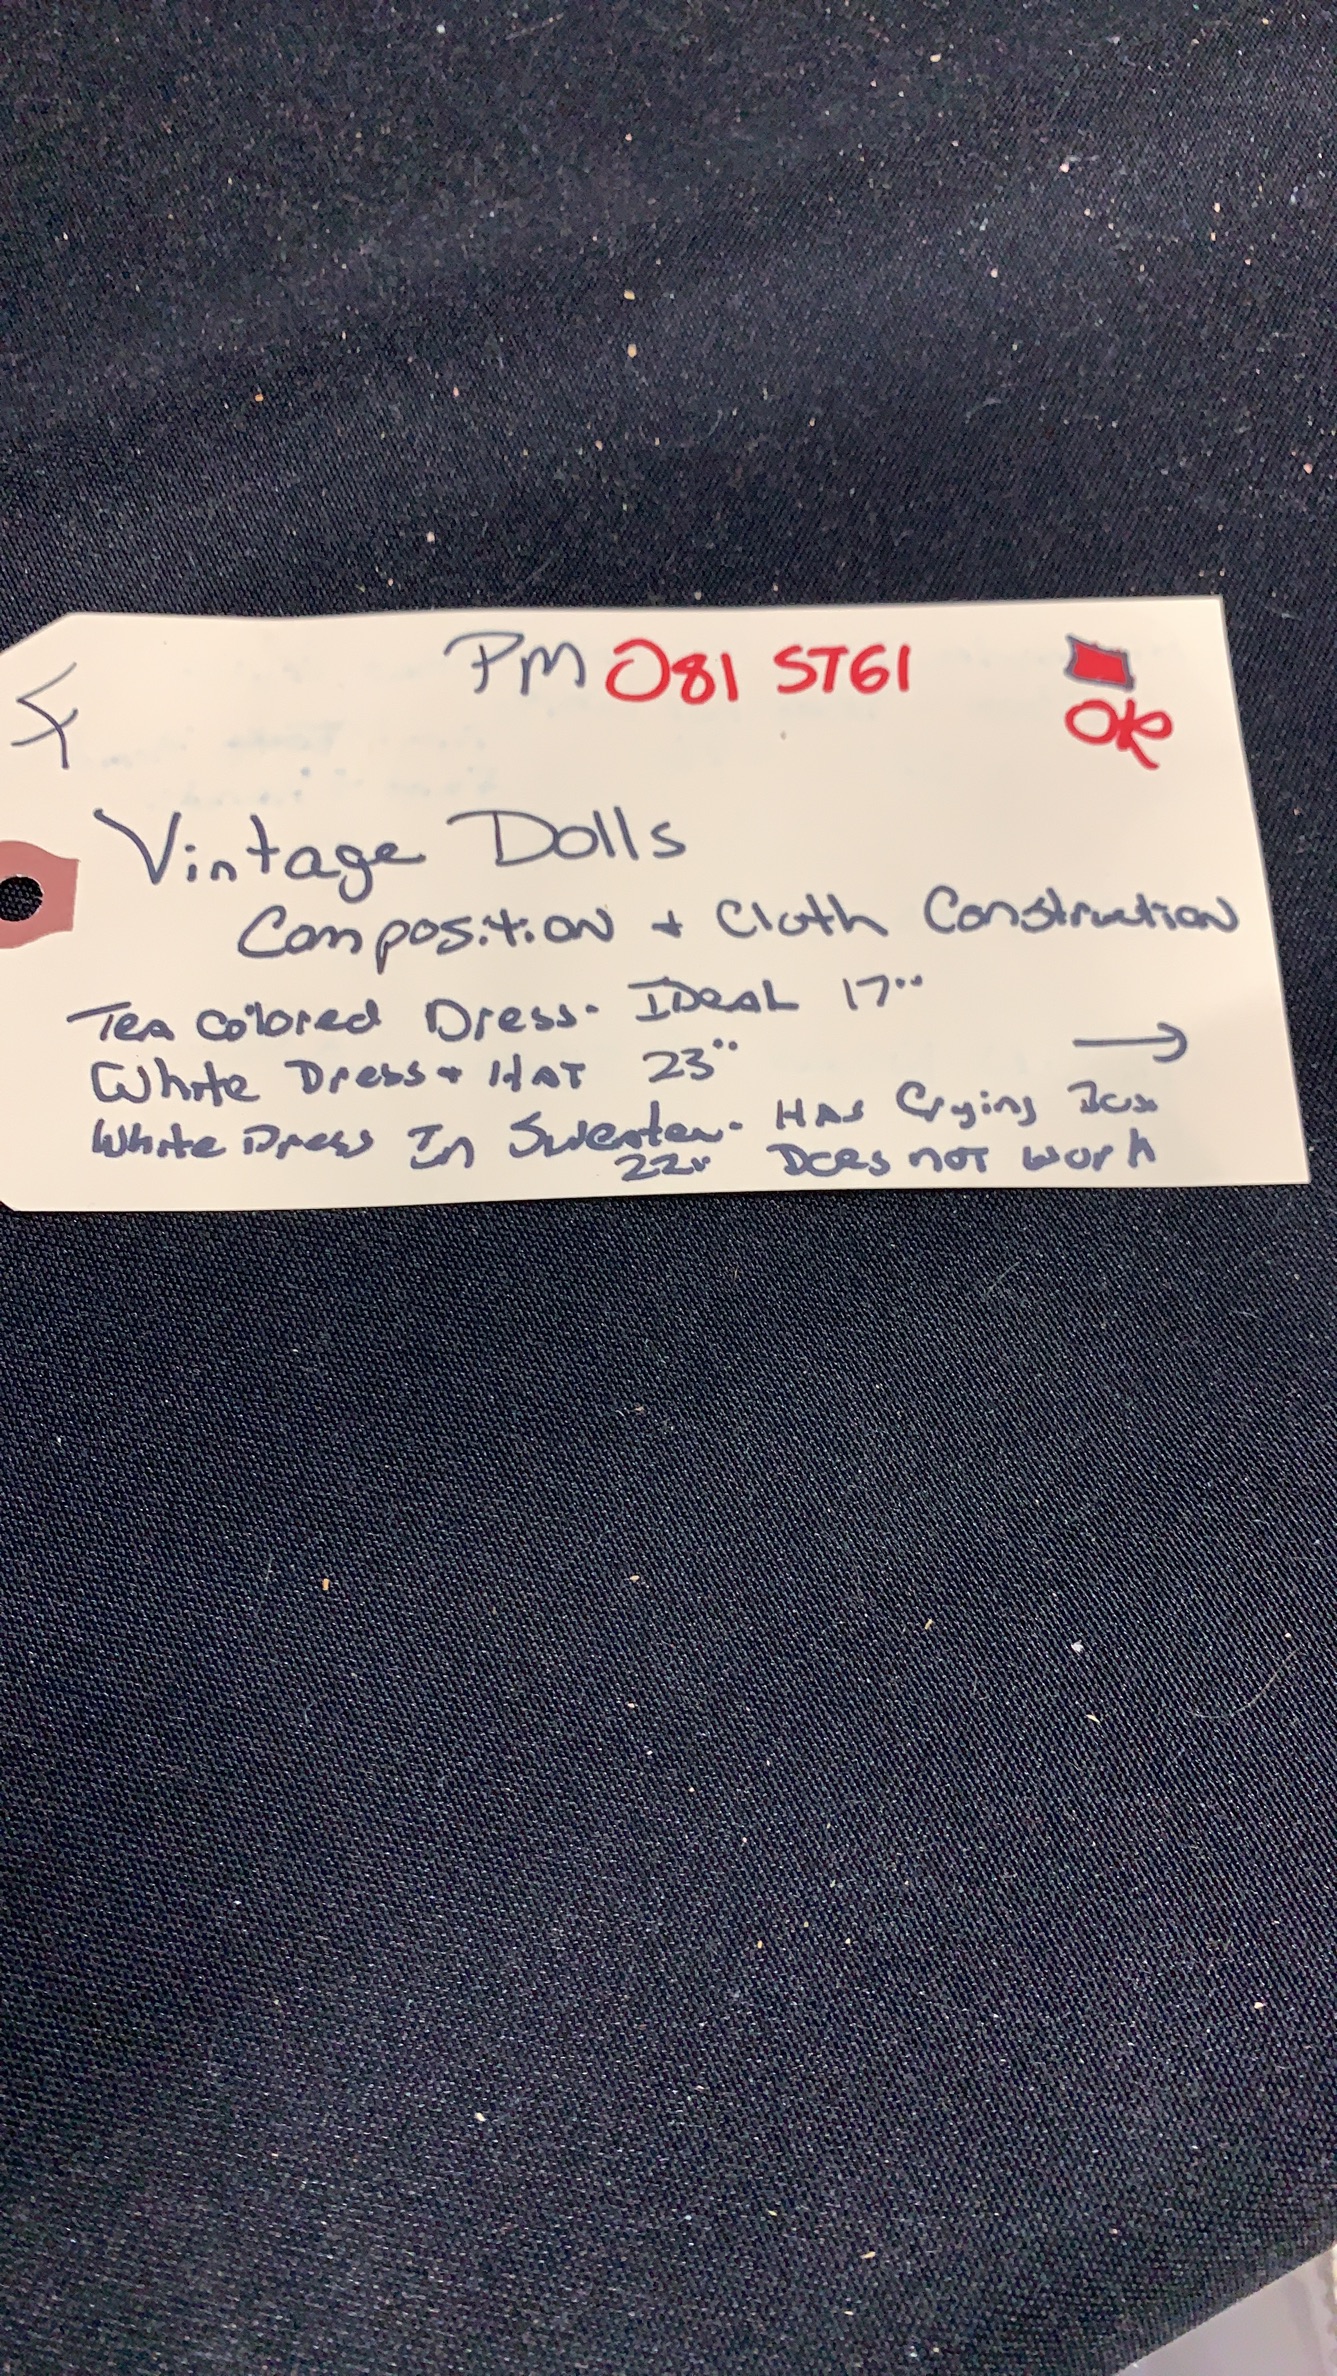 PM 081 ST61
OK
4
Vintage Dolls
Composition + Cloth Construction
Tea Colored Dress - IDeaL 17"
White Dress + HAT 23"
White Dress In Sweater - HAS Crying Box
22" Does not work